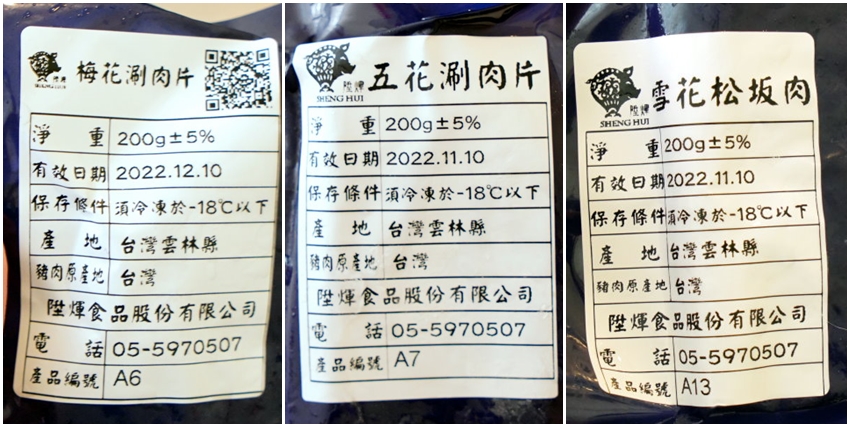 陞煇
SHENG HUI
梅花涮肉片
淨重 200g±5%
有效日期 2022.12.10
保存條件 須冷凍於-18℃以下
產地 台灣雲林縣
豬肉原產地 台灣
陞煇食品股份有限公司
電話 05-5970507
產品編號 A6
陞煇
SHENG HUI
五花涮肉片
淨重 200g±5%
有效日期 2022.11.10
保存條件 須冷凍於-18℃以下
產地 台灣雲林縣
豬肉原產地 台灣
陞煇食品股份有限公司
電話 05-5970507
產品編號 A7
陞煇
SHENG HUI
雪花松坂肉
淨重 200g±5%
有效日期 2022.11.10
保存條件 須冷凍於-18℃以下
產地 台灣雲林縣
豬肉原產地 台灣
陞煇食品股份有限公司
電話 05-5970507
產品編號 A13